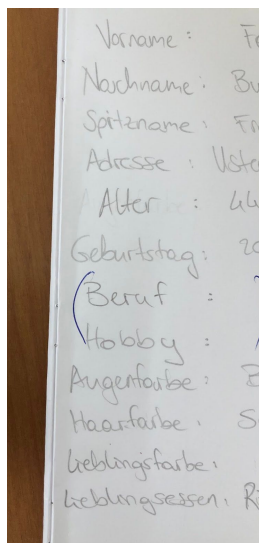 Vorname : Fr
Nachname : Bu
Spitzname : Fr
Adresse : Uste
Alter : 44
Geburtstag : 20
(Beruf :
Hobby :
Augenfarbe : B
Haarfarbe : S
Lieblingsfarbe :
Lieblingsessen : Ri